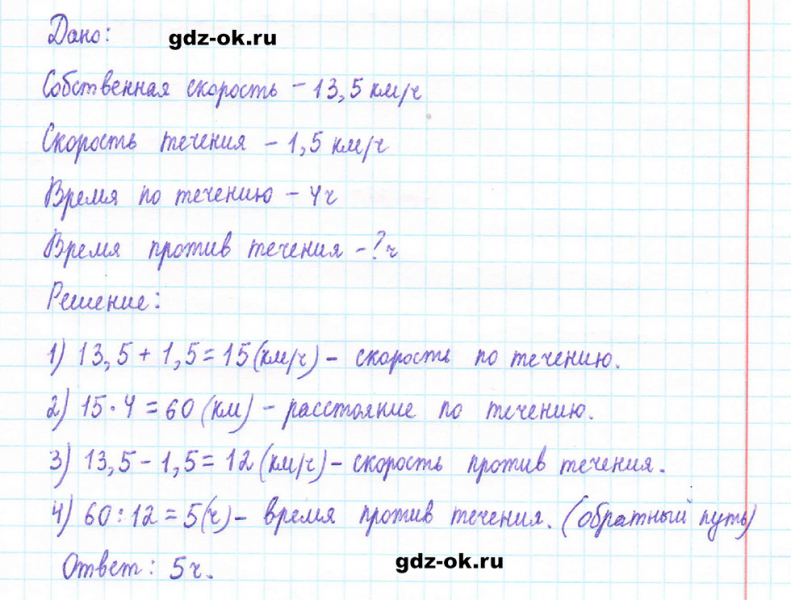 Дано: gdz-ok.ru
Собственная скорость - 13,5 км/ч
Скорость течения - 1,5 км/ч
Время по течению - 4ч
Время против течения - ? ч
Решение:
1) 13,5 + 1,5 = 15 (км/ч) - скорость по течению.
2) 15 · 4 = 60 (км) - расстояние по течению.
3) 13,5 - 1,5 = 12 (км/ч) - скорость против течения.
4) 60 : 12 = 5 (ч) - время против течения. (обратный путь)
Ответ: 5ч.
gdz-ok.ru